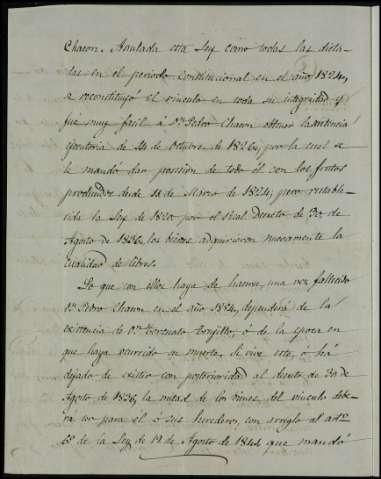 Chacon. Anulada esta Ley como todas las dicta-
das en el periodo Constitucional en el año 1824,
se reconstituyó el vinculo en toda su integridad y
fue muy facil á Dn. Pedro Chacon obtener la sentencia
ejecutoria de 14 de Octubre de 1826, por la cual se
le mandó dar posesion de todo él con los frutos
producidos desde 11 de Marzo de 1824; pero restable-
cida la Ley de 1820 por el Real Decreto de 30 de
Agosto de 1836, los bienes adquirieron nuevamente la
cualidad de libres.
Lo que con ellos haya de hacerse, una vez fallecido
Dn. Pedro Chacon en el año 1854, dependerá de la
existencia de Dn. Torcuato Trujillo, ó de la epoca en
que haya ocurrido su muerte. Si vive este, ó há
dejado de existir con posterioridad al decreto de 30 de
Agosto de 1836, la mitad de los bienes del vinculo debe-
rá ser para él ó sus herederos, con arreglo al arto.
6º de la Ley de 19 de Agosto de 1841 que mandó